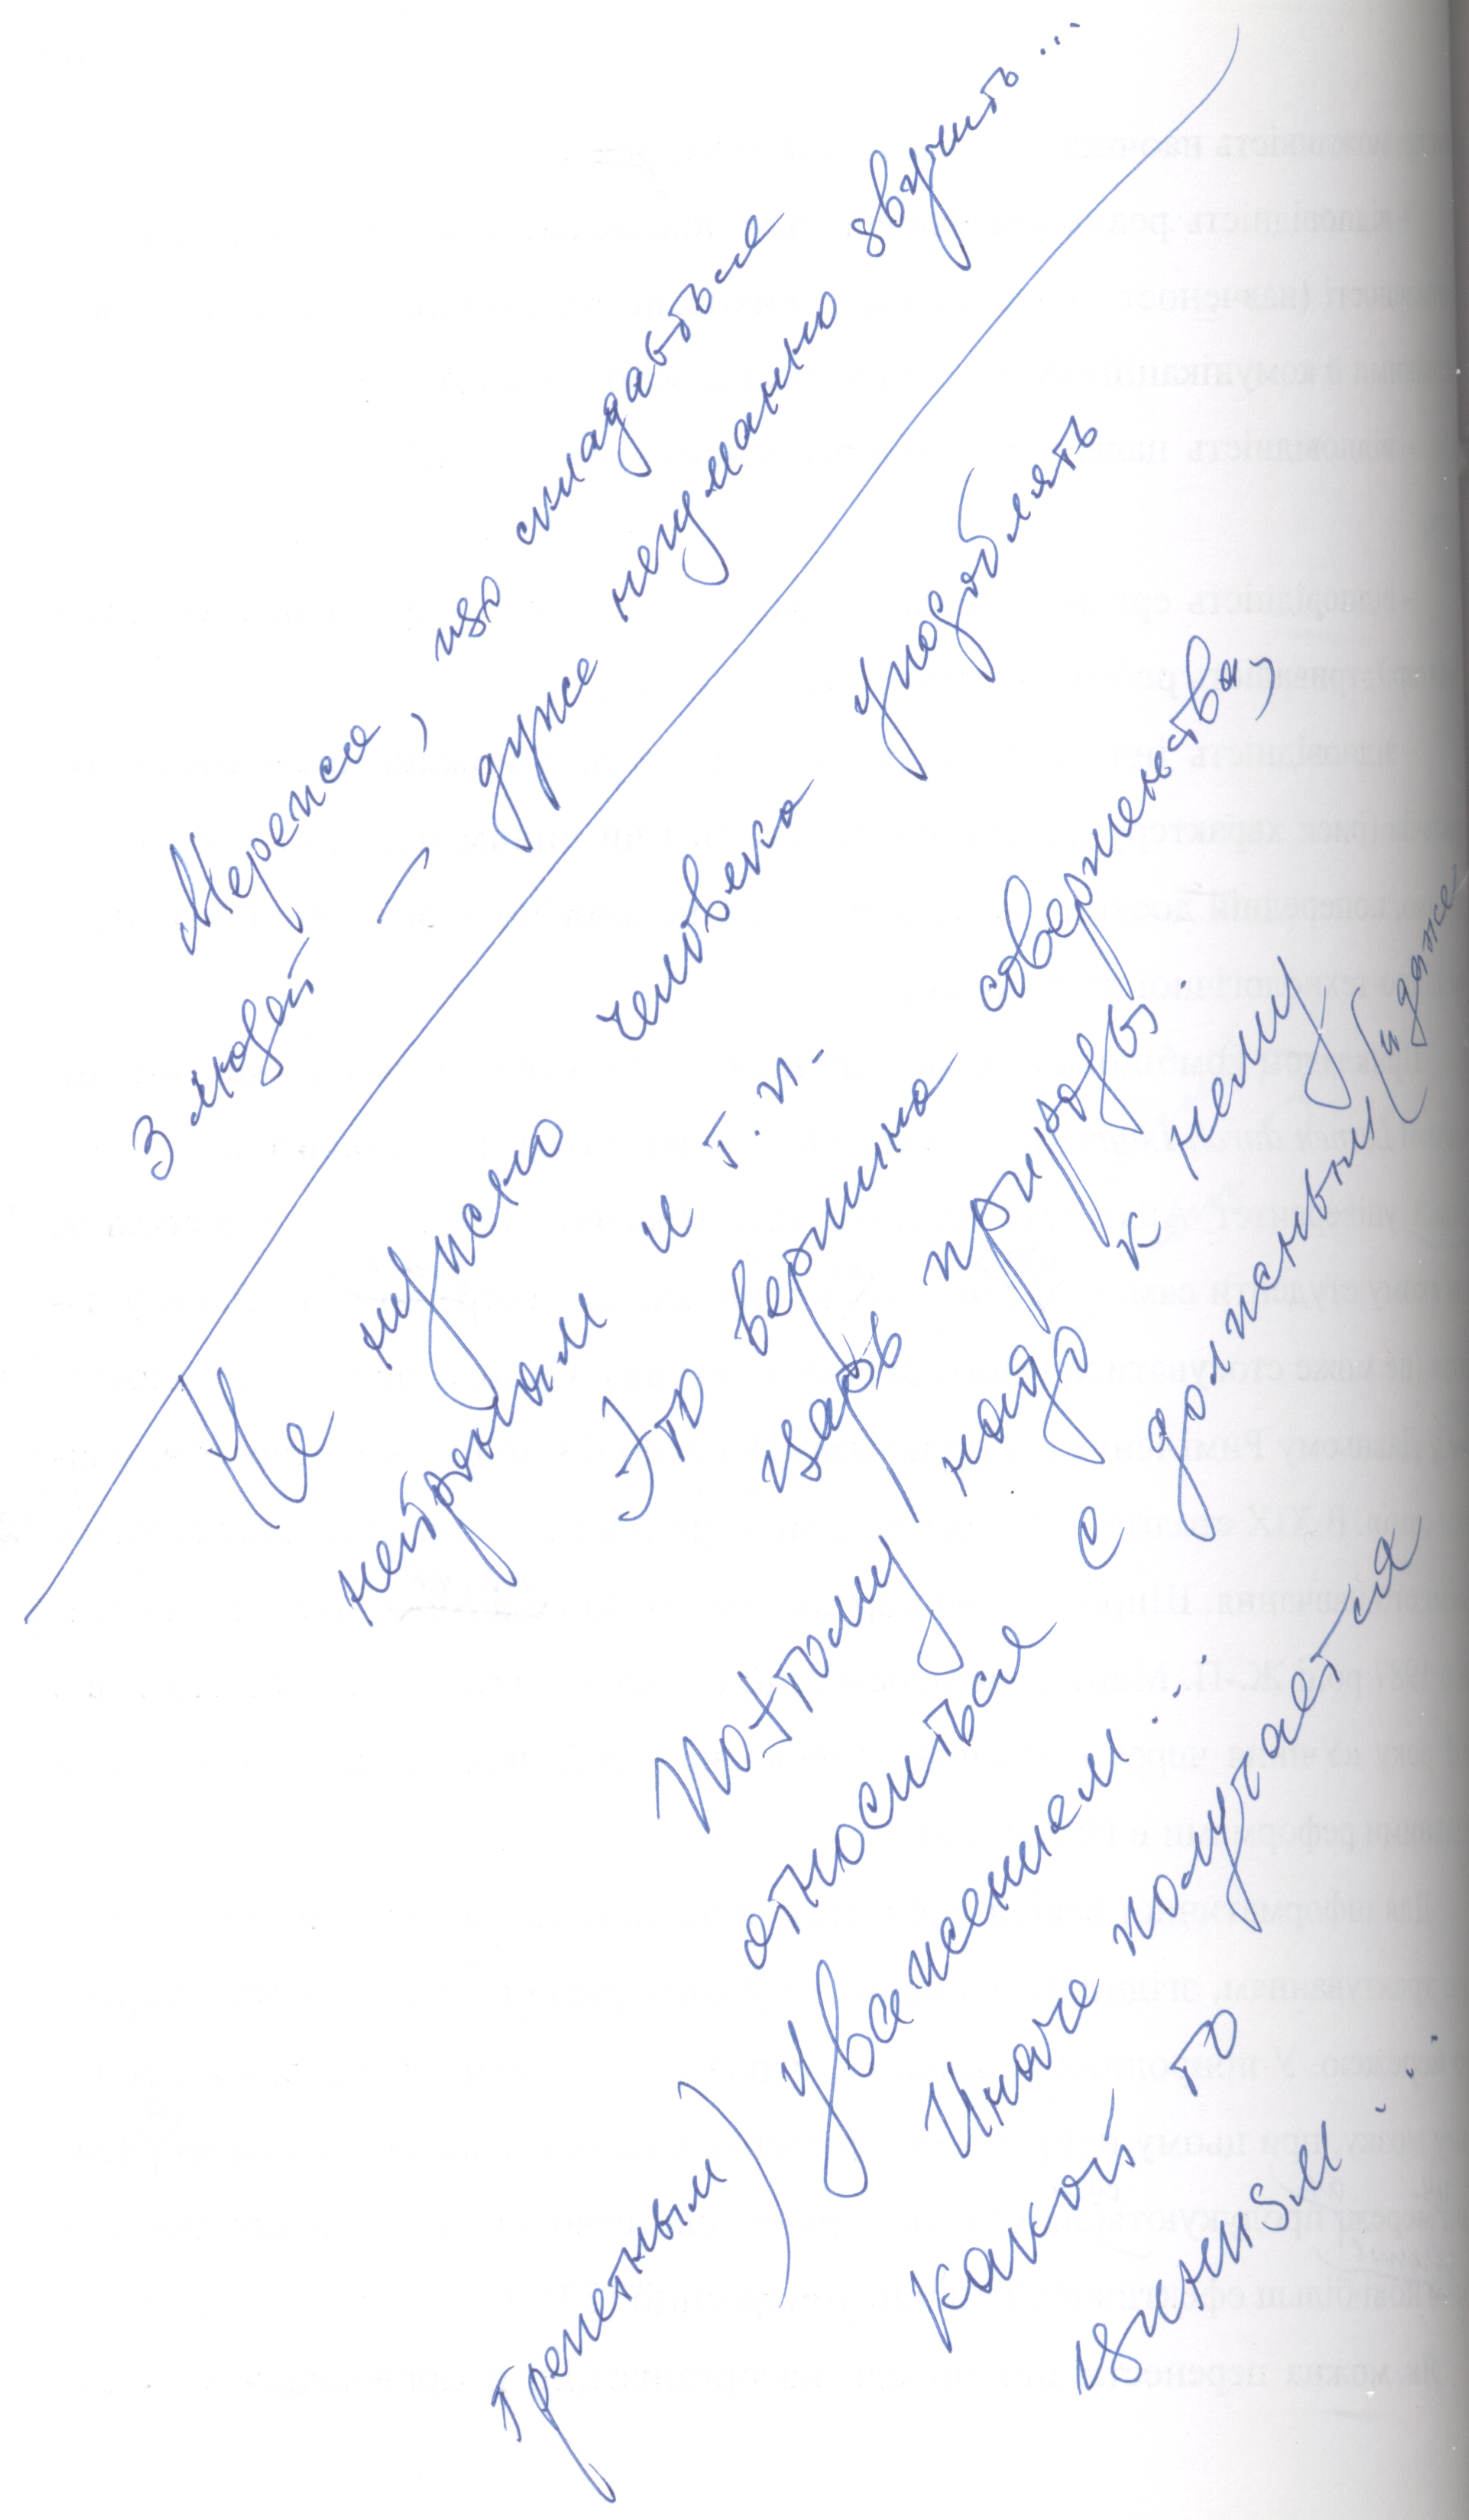 Мережа, що складається
з людей — дуже негуманно звучить...
Не нужно человека уподоблять
нейронам и т.п.
Это вершина совершенства,
царь природы.
Поэтому надо к нему
относиться с должным (и даже
трепетным) уважением...
Иначе получается
какой то
цинизм...